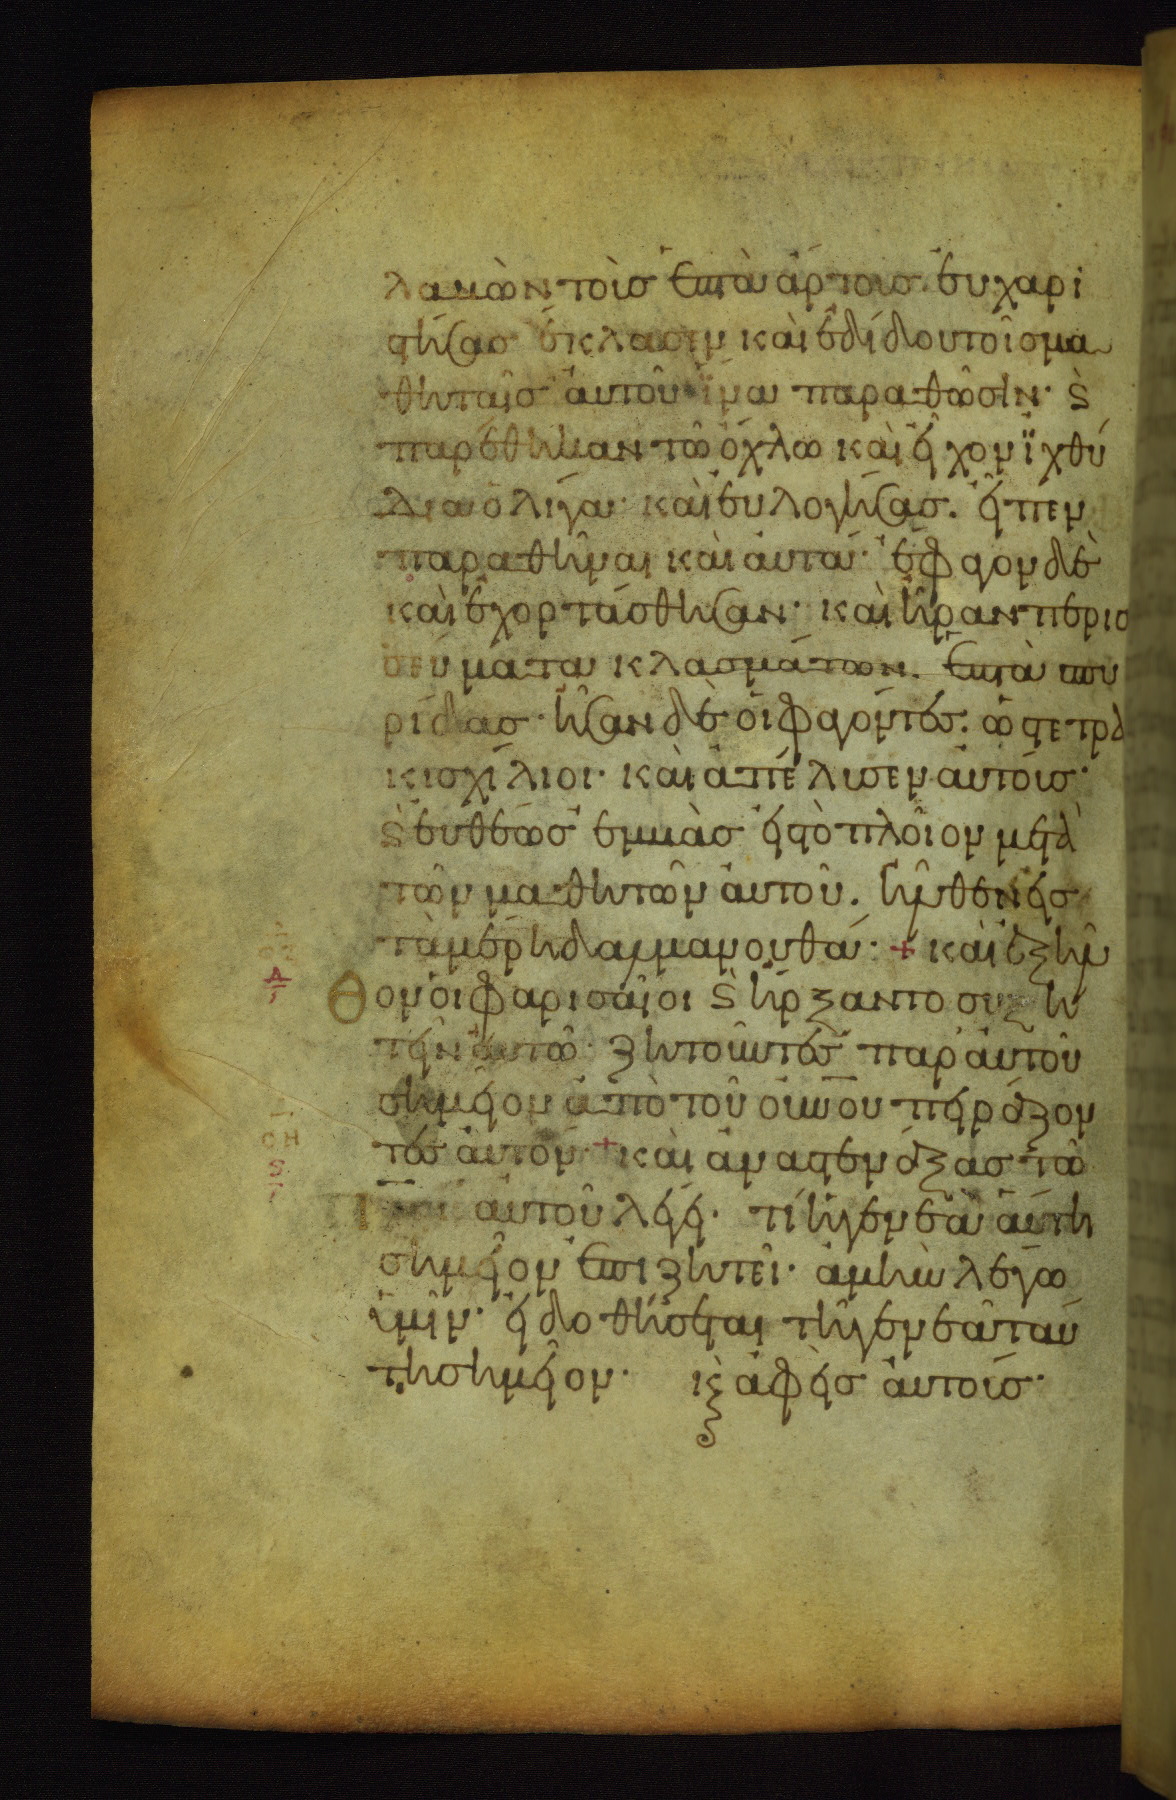 λαμβὼν τοὺσ ἑπτὰ ἄρτουσ. εὐχαρι
στήσασ ἔκλασεν καὶ ἐδίδου τοῖσ μα
θηταῖσ αὐτοῦ ἵνα παραθῶσιν· ϗ
παρέθηκαν τῶ ὄχλω καὶ εἶχον ϊχθύ
δια ὀλίγα· καὶ εὐλογήσασ. εἶπεν
παραθῆναι καὶ αὐτά· ἔφαγον δὲ
καὶ ἐχορτάσθησαν· καὶ ἦραν περισ
σεύματα κλασμάτων. ἑπτὰ σπυ
ρίδασ· ἦσαν δὲ οἱ φαγόντεσ. ὡσ τετρα
κισχίλιοι· καὶ ἀπέλυσεν αὐτούσ·
ϗ εὐθέωσ ἐμβὰσ εἰσ τὸ πλοῖον μετὰ
τῶν μαθητῶν αὐτοῦ. ἦλθεν εἰσ
τὰ μέρη δαλμανουθά· + καὶ ἐξῆλ
θον οἱ φαρισαῖοι ϗ ἤρξαντο συζη
τεῖν αὐτῶ· ζητοῦντεσ παρ' αὐτοῦ
σημεῖον ἀπὸ τοῦ οὐνου πειράζον
τεσ αὐτόν· + καὶ ἀναστενάξασ τῶ
πνι αὐτοῦ λέγει· τί ἡ γενεὰ αὕτη
σημεῖον ἐπιζητεῖ· ἀμὴν λέγω
ὑμῖν· εἰ δοθήσεται τῆ γενεᾶ ταύ
τη σημεῖον· κ αφεὶσ αὐτούσ·
οη